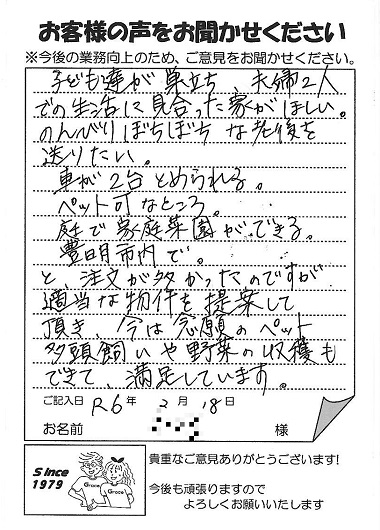 お客様の声をお聞かせください
※今後の業務向上のため、ご意見をお聞かせください。
子ども達が巣立ち、夫婦2人
での生活に見合った家がほしい。
のんびりぼちぼちな老後を
送りたい。
車が2台とめられる。
ペット可なところ。
庭で家庭菜園ができる。
豊明市内で。
と、注文が多かったのですが
適当な物件を提案して
頂き、今は念願のペット
多頭飼いや野菜の収穫も
できて、満足しています。
ご記入日 R6年 2月 18日
お名前 様
Since
1979
Grace
Grace
貴重なご意見ありがとうございます!
今後も頑張りますので
よろしくお願いいたします